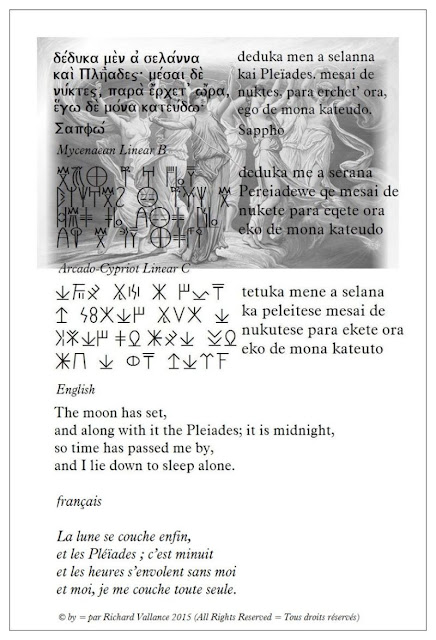 δέδυκα μὲν ἀ σελάννα
καὶ Πληΐαδες· μέσαι δὲ
νύκτες, παρὰ ἔρχετ᾽ ὤρα,
ἔγω δὲ μόνα κατεύδω·
Σαπφώ
deduka men a selanna
kai Pleïades. mesai de
nuktes. para erchet' ora,
ego de mona kateudo.
Sappho
Mycenaean Linear B
deduka me a serana
Pereiadewe qe mesai de
nukete para eqete ora
eko de mona kateudo
Arcado-Cypriot Linear C
tetuka mene a selana
ka peleitese mesai de
nukutese para ekete ora
eko de mona kateuto
English
The moon has set,
and along with it the Pleiades; it is midnight,
so time has passed me by,
and I lie down to sleep alone.
français
La lune se couche enfin,
et les Pléïades ; c'est minuit
et les heures s'envolent sans moi
et moi, je me couche toute seule.
© by = par Richard Vallance 2015 (All Rights Reserved = Tous droits réservés)